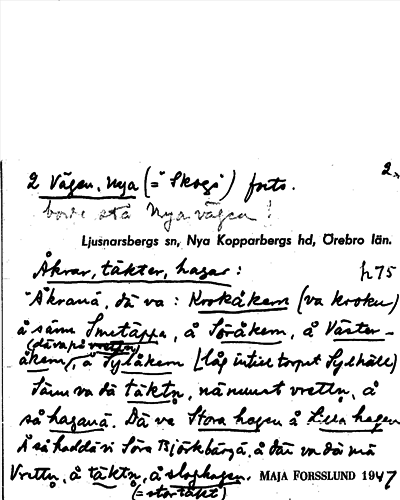 2.
2 Vägen, Nya (= "Skogs") forts.
borde stå Nya vägen!
Ljusnarsbergs sn, Nya Kopparbergs hd, Örebro län.
Åkrar, täkter, hagar: p 75
"Åkranä, dä va: Krokåkern (va kroku)
å sänn Smetäppa, å Söråkern, å Väster-
(dä va på vretten)
åkern, å Sydåkern (låg intill torpet Sydhäll)
Sänn va dä täktn, nämnst vretln, å
så haganä. Dä va Stora hagen å Lilla hagen
Å så hadd vi Söra Björkbärgä, å där va dä nå
Vretln, å täktn, å sloghagen. MAJA FORSSLUND 1947
(= stor täkt)